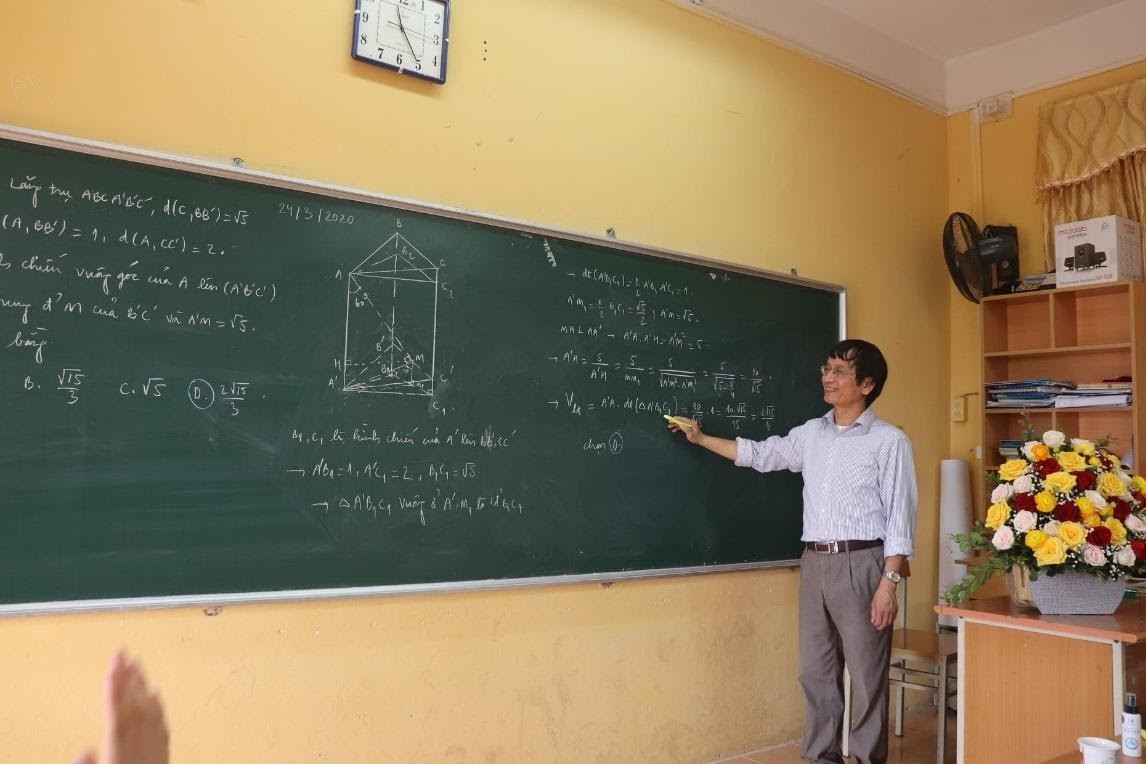 Lăng trụ ABC A'B'C', d(C, BB') = √5
(A, BB') = 1, d(A, CC') = 2.
chiếu vuông góc của A lên (A'B'C')
M của B'C' và A'M = √5.
bằng
B. √15/3 C. √5 D. 2√15/3.
24/3/2020
B
B₂
A
C
C₂
B'
H
B₁
M
A'
C'
C₁
B₁, C₁ là hình chiếu của A' lên BB', CC'
→ A'B₁ = 1, A'C₁ = 2, B₁C₁ = √5
→ △A'B₁C₁ vuông ở A', M₁ là tđ B₁C₁
→ dt(A'B₁C₁) = 1/2 A'B₁ A'C₁ = 1.
A'M₁ = 1/2 B₁C₁ = √5/2 ; A'M = √5.
MH ⊥ AA' → A'A. A'H = A'M² = 5
→ A'A = 5/A'H = 5/MM₁ = 5/√(A'M² - A'M₁²) = 5/√(5 - 5/4) = 10/√15.
→ V = A'A. dt(△A'B₁C₁) = 10/√15 . 1 = 10√15/15 = 2√15/3
chọn D
12 1 2 3 4 5 6 7 8 9
microlab
M-108